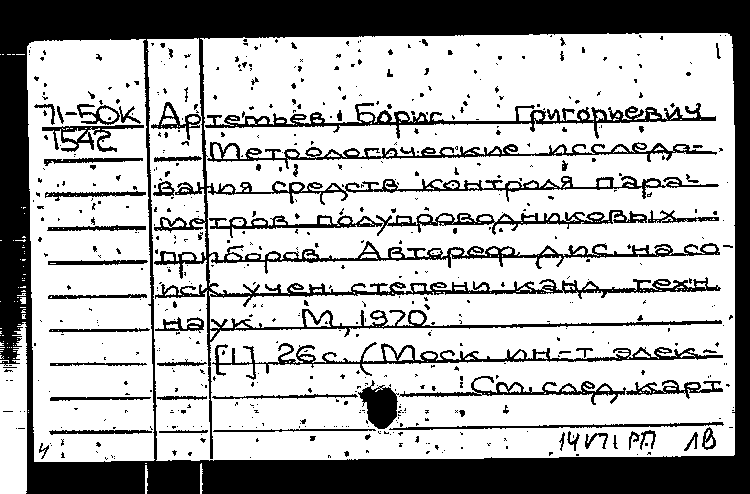 1
71-50К Артемьев, Борис Григорьевич
1542
Метрологические исследо-
вания средств контроля пара-
метров полупроводниковых
приборов. Автореф. дис. на со-
иск. учен. степени канд. техн.
наук. М., 1970.
[1], 26 с. (Моск. ин-т элек-
См. след. карт.
14 VI 71 РП 1В
4